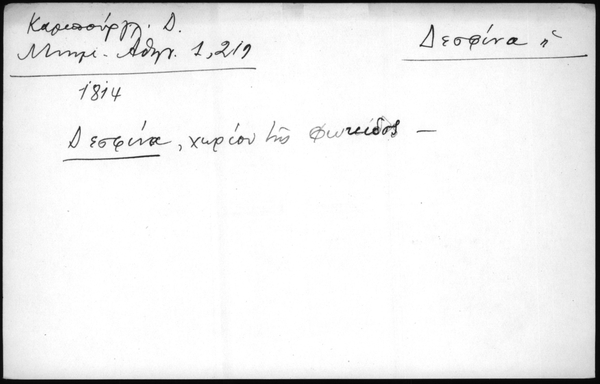 Καμπούργλ. Δ.
Μνημ. Αθην. 1, 219
Δεσφίνα ἡ
1814
Δεσφίνα, χωρίον τῆς Φωκίδος —